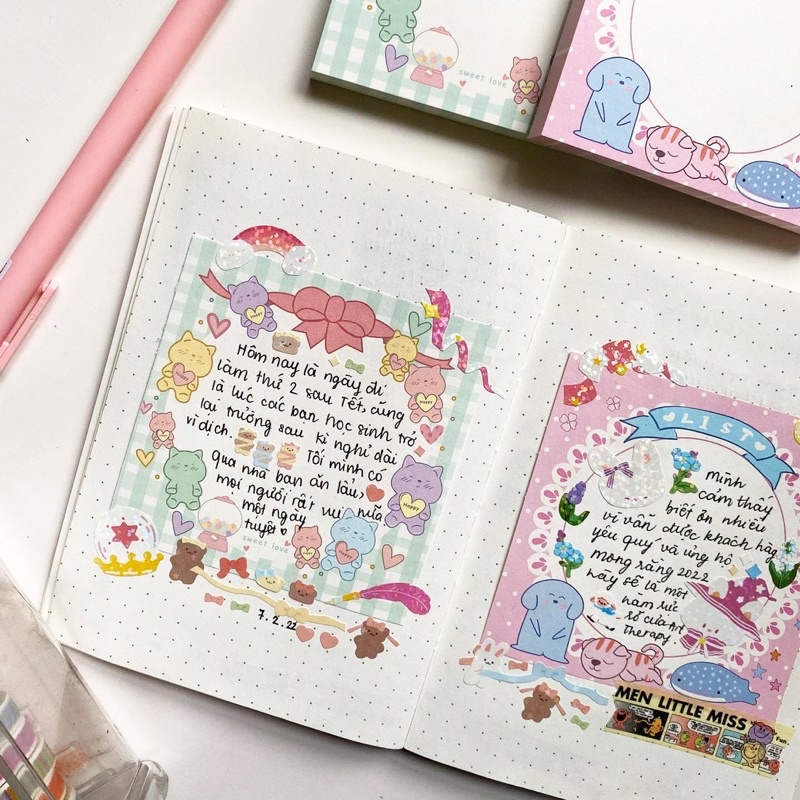 sweet love
Hôm nay là ngày đi
làm thứ 2 sau Tết, cũng
là lúc các bạn học sinh trở
lại trường sau kì nghỉ dài
vì dịch. Tối mình có
qua nhà bạn ăn lẩu,
mọi người rất vui, nữa
một ngày
tuyệt
sweet love
7.2.22
LIST
Mình
cảm thấy
biết ơn nhiều
vì vẫn được khách hàg
yêu quý và ủng hộ
mong rằng 2022
này sẽ là một
năm rực
rỡ của Art
Therapy.
MEN LITTLE MISS
Fun.
HAPPY
HAPPY
HAPPY
HAPPY
HAPPY